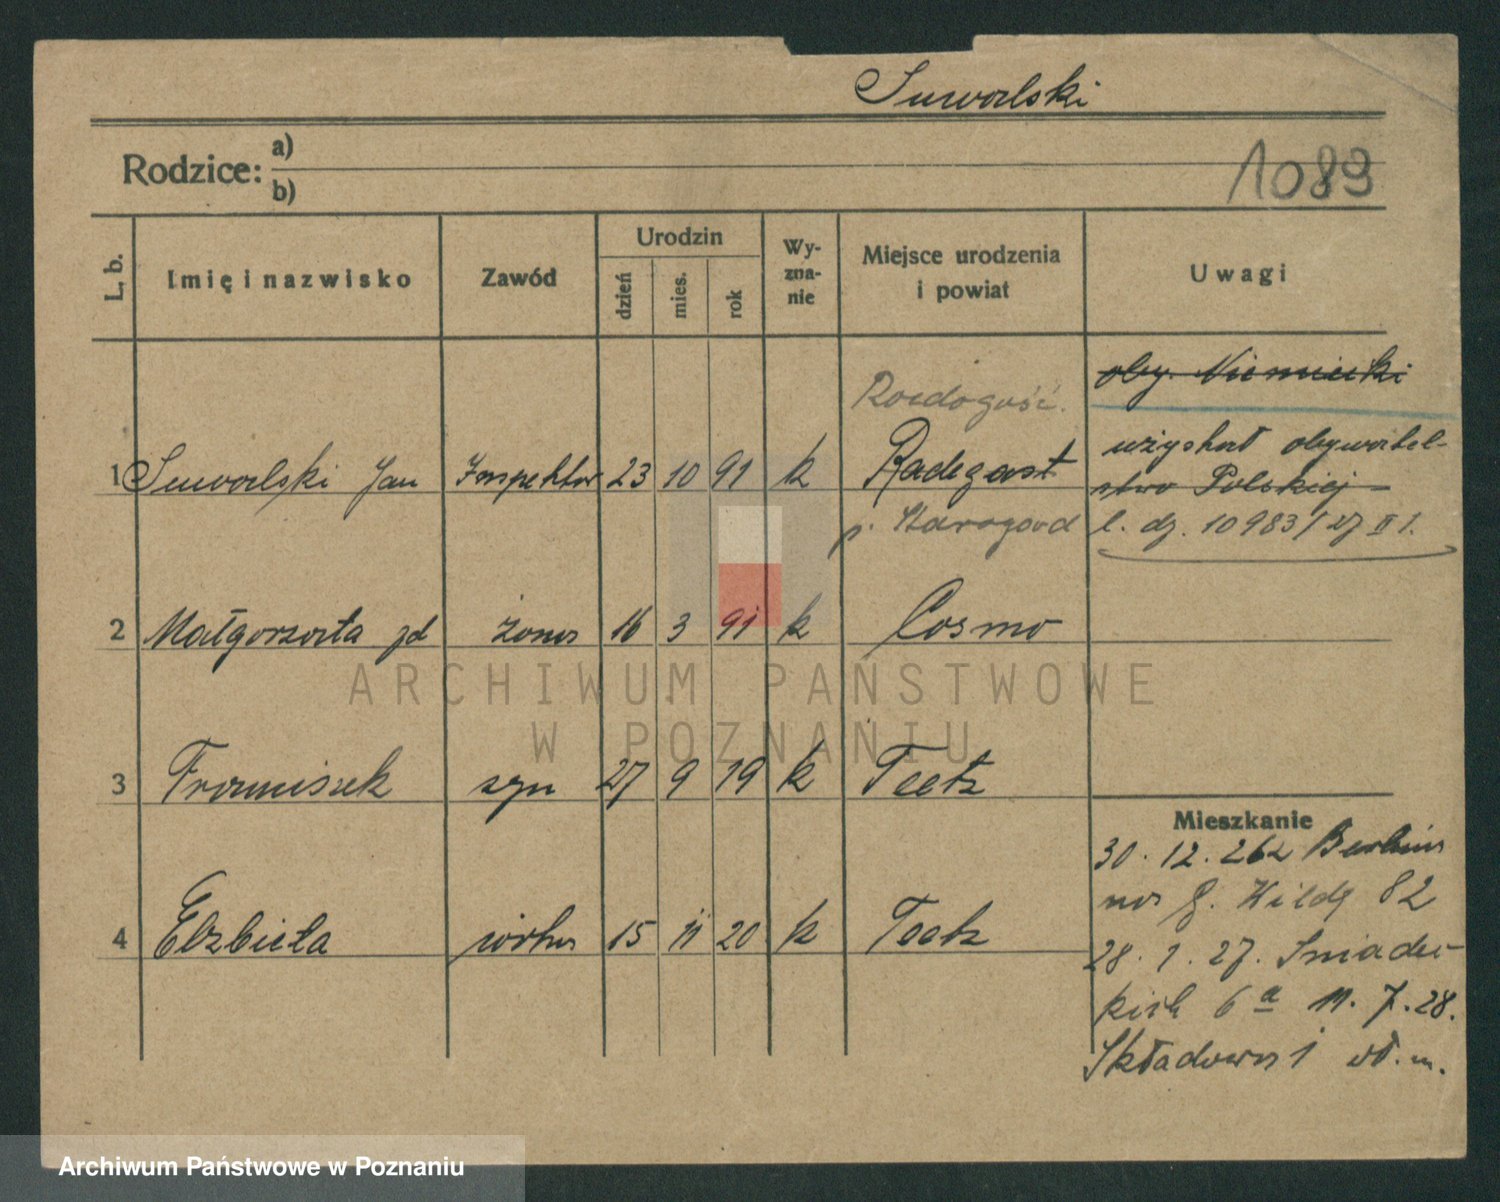 Suwalski
Rodzice: a)
b)
1089
L. b.
Imię i nazwisko
Zawód
Urodzin
dzień
mies.
rok
Wy-
zna-
nie
Miejsce urodzenia
i powiat
Uwagi
oby. Niemiecki
Radogość.
uzyskał obywatel-
1 Suwalski Jan Inspektor 23 10 91 k Radegast
stwo Polskiej
p. Starogard
l. dz. 10983/27 II 1.
2 Małgorzata zd żona 16 3 91 k Cosmo
ARCHIWUM PAŃSTWOWE
W POZNANIU
3 Franciszek syn 27 9 19 k Teetz
Mieszkanie
30. 12. 26 z Berlina
na G. Wildę 82
4 Elżbieta córka 15 11 20 k Teetz
28. 1. 27. Śniadec-
kich 6a 11. 7. 28.
Składowa 1 wł. m.
Archiwum Państwowe w Poznaniu